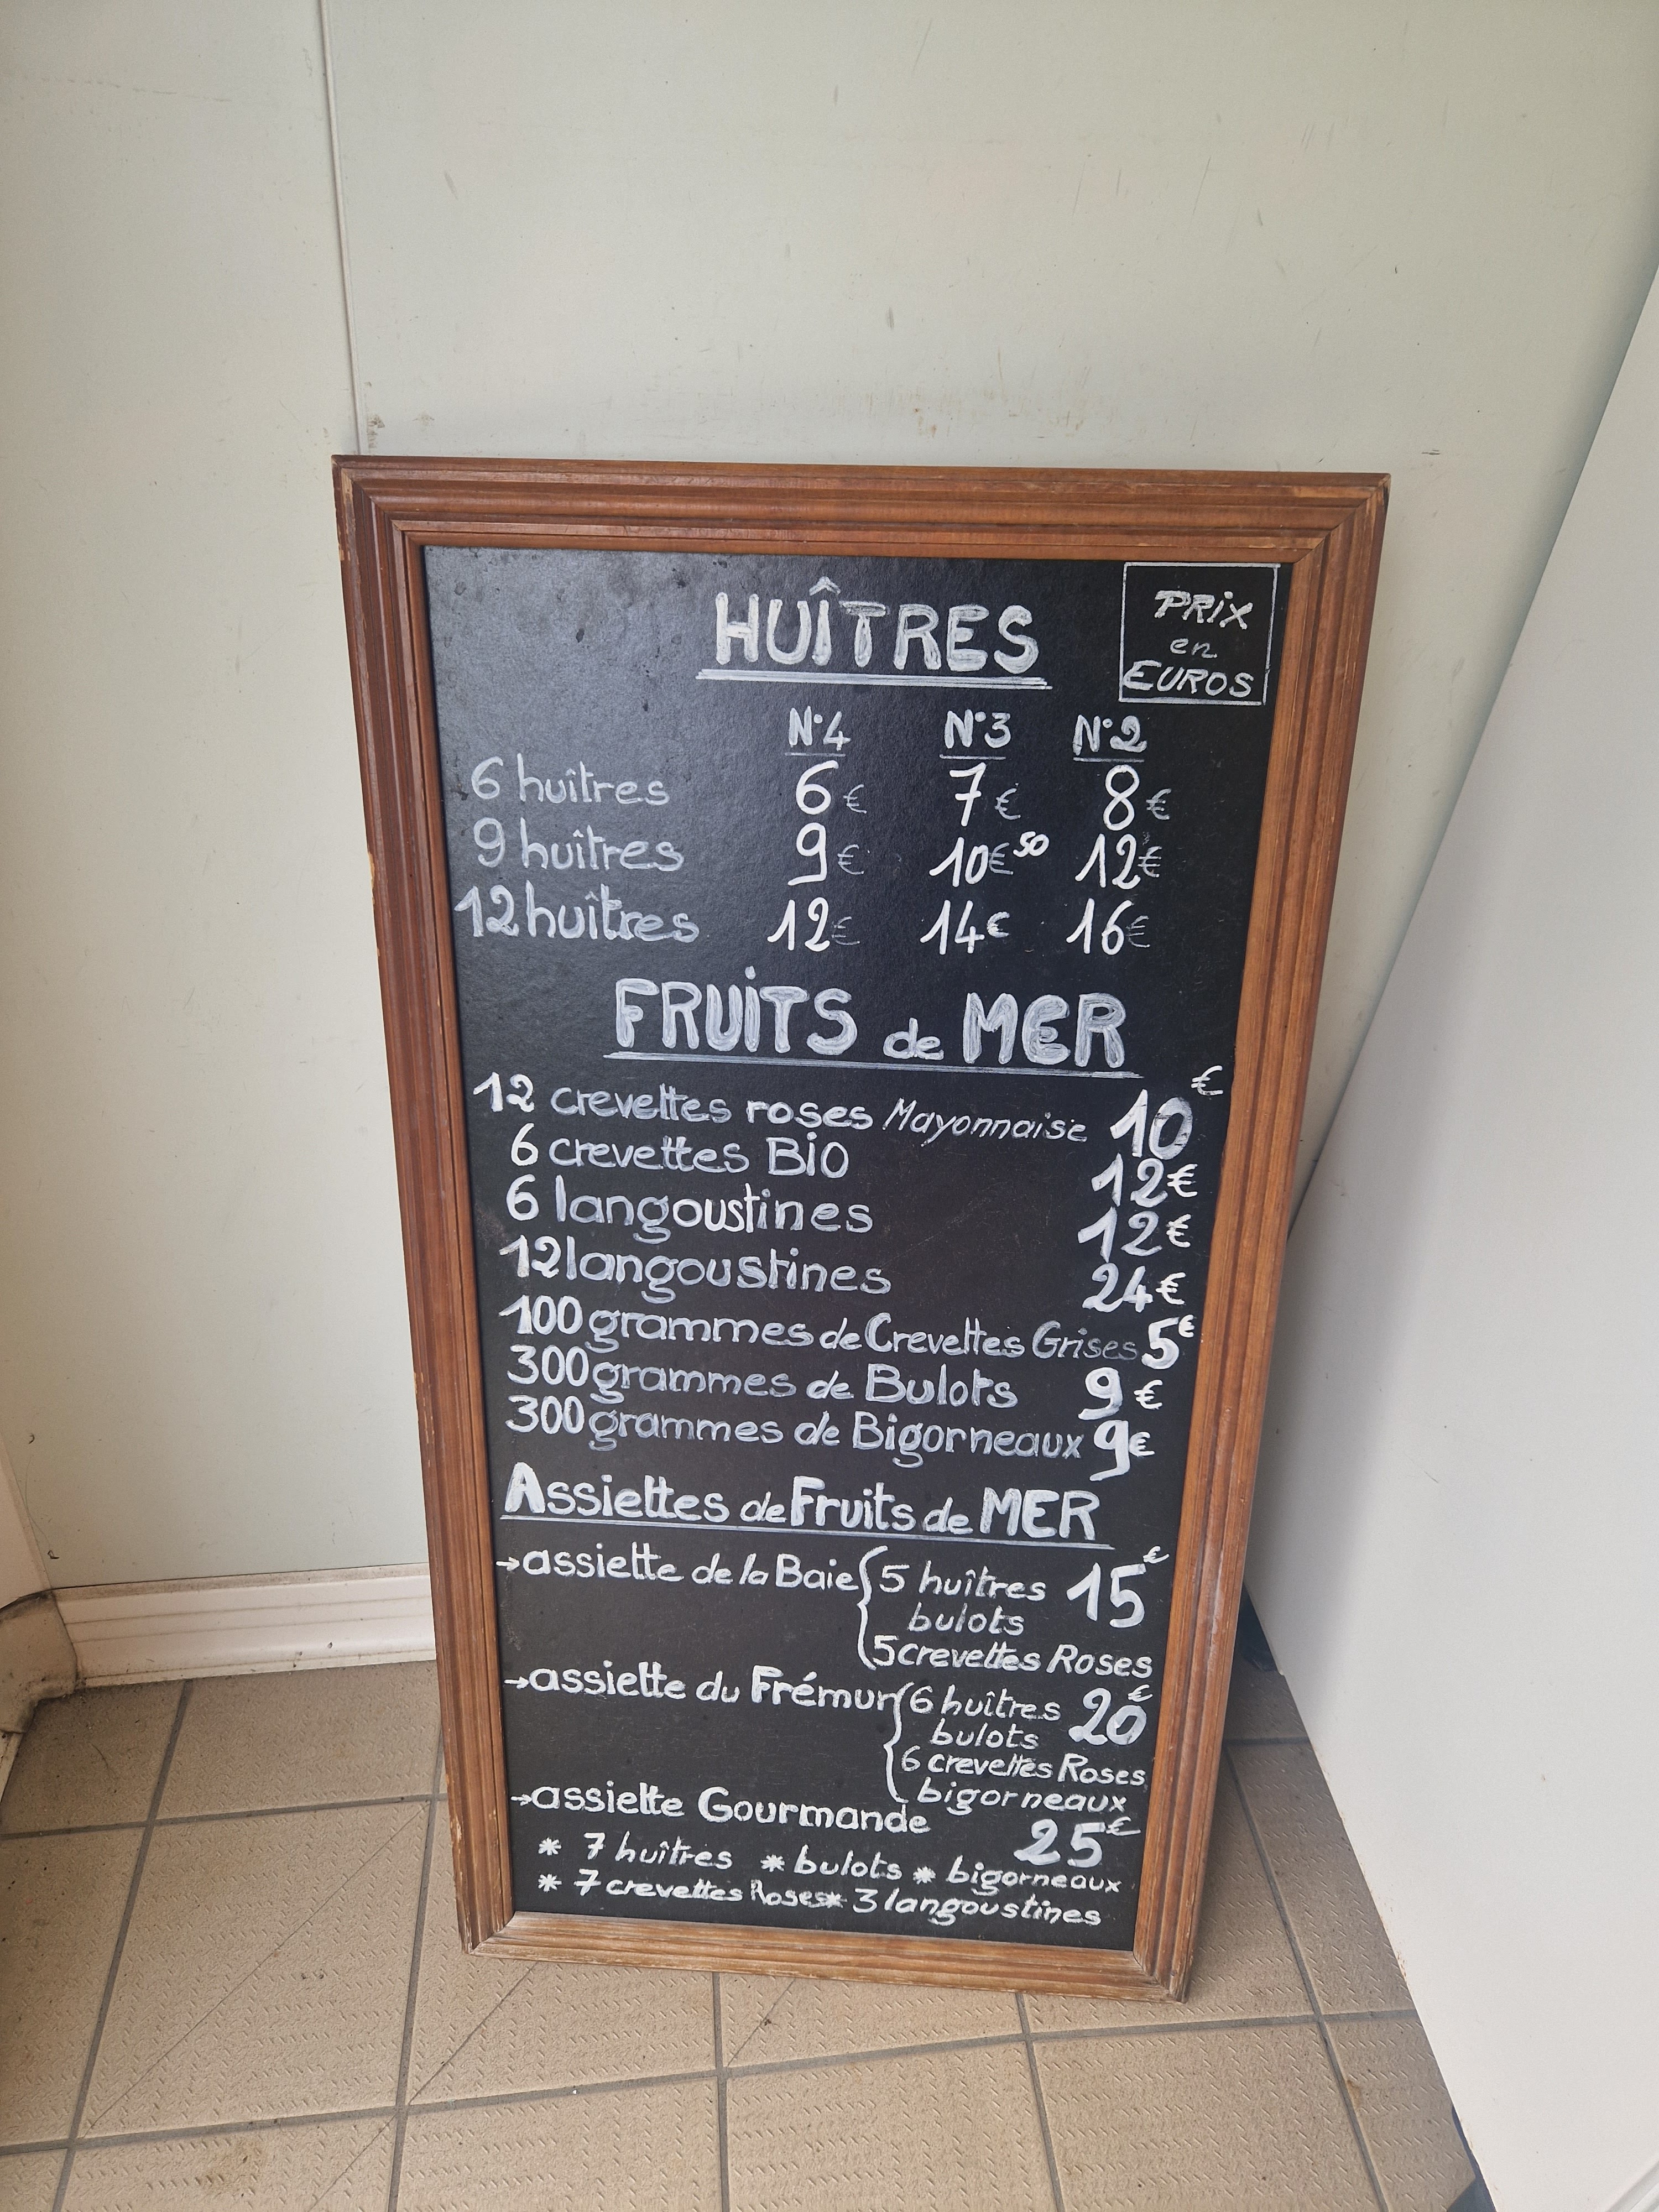 HUÎTRES
PRIX
en
EUROS
N°4 N°3 N°2
6 huîtres 6€ 7€ 8€
9 huîtres 9€ 10€50 12€
12 huîtres 12€ 14€ 16€
FRUITS de MER
12 crevettes roses Mayonnaise 10€
6 crevettes BIO 12€
6 langoustines 12€
12 langoustines 24€
100 grammes de Crevettes Grises 5€
300 grammes de Bulots 9€
300 grammes de Bigorneaux 9€
Assiettes de Fruits de MER
→assiette de la Baie { 5 huîtres 15€
bulots
5 crevettes Roses
→assiette du Frémur { 6 huîtres 20€
bulots
6 crevettes Roses
bigorneaux
→assiette Gourmande 25€
* 7 huîtres * bulots * bigorneaux
* 7 crevettes Roses * 3 langoustines